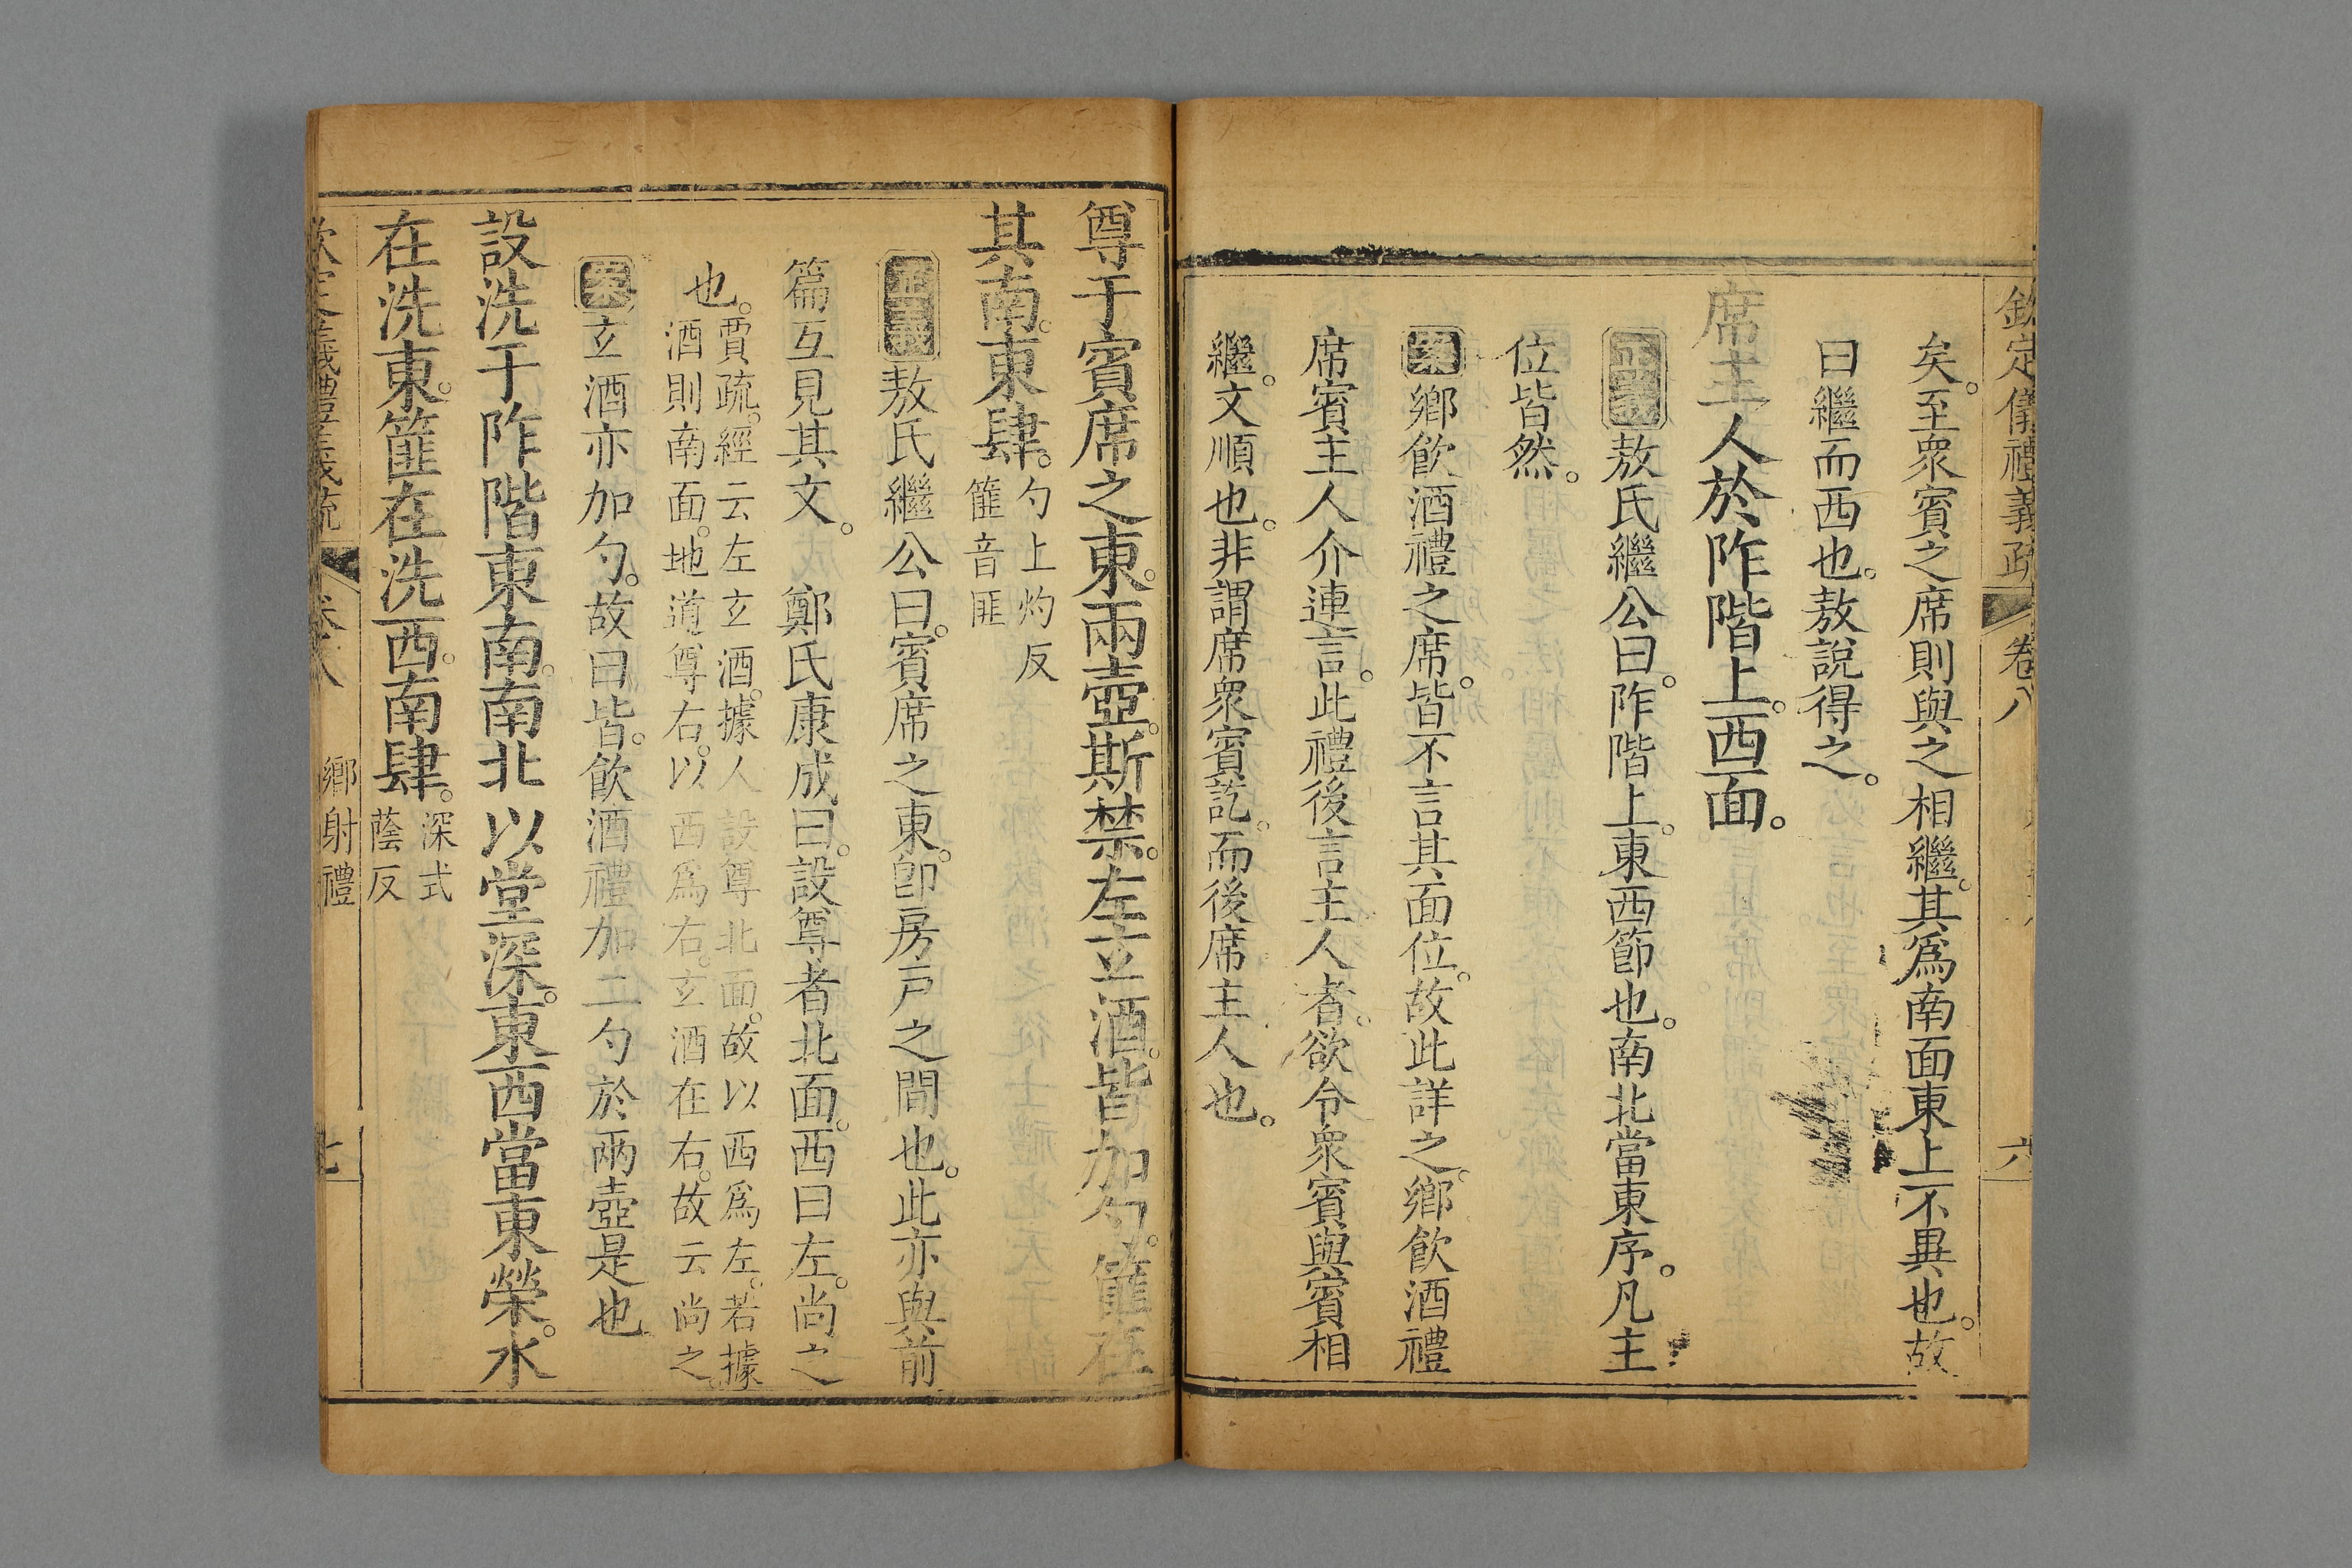 欽定儀禮義疏 卷八 六
矣。至眾賓之席則與之相繼。其爲南面東上不異也。故
曰繼而西也。敖說得之。
席主人於阼階上。西面。
正義敖氏繼公曰。阼階上。東西節也。南北當東序。凡主
位皆然。
案鄉飲酒禮之席。皆不言其面位。故此詳之。鄉飲酒禮
席賓主人介連言。此禮後言主人者。欲令眾賓與賓相
繼。文順也。非謂席眾賓訖。而後席主人也。
尊于賓席之東。兩壺。斯禁。左玄酒。皆加勺。篚在
其南。東肆。勺上灼反
篚音匪
正義敖氏繼公曰。賓席之東。卽房戶之閒也。此亦與前
篇互見其文。 鄭氏康成曰。設尊者北面。西曰左。尚之
也。賈疏。經云左玄酒。據人設尊北面。故以西爲左。若據
酒則南面。地道尊右。以西爲右。玄酒在右。故云尚之。
案玄酒亦加勺。故曰皆。飲酒禮加二勺於兩壺是也
設洗于阼階東南。南北以堂深。東西當東榮。水
在洗東。篚在洗西。南肆。深式
蔭反
欽定儀禮義疏 卷八 鄉射禮 七